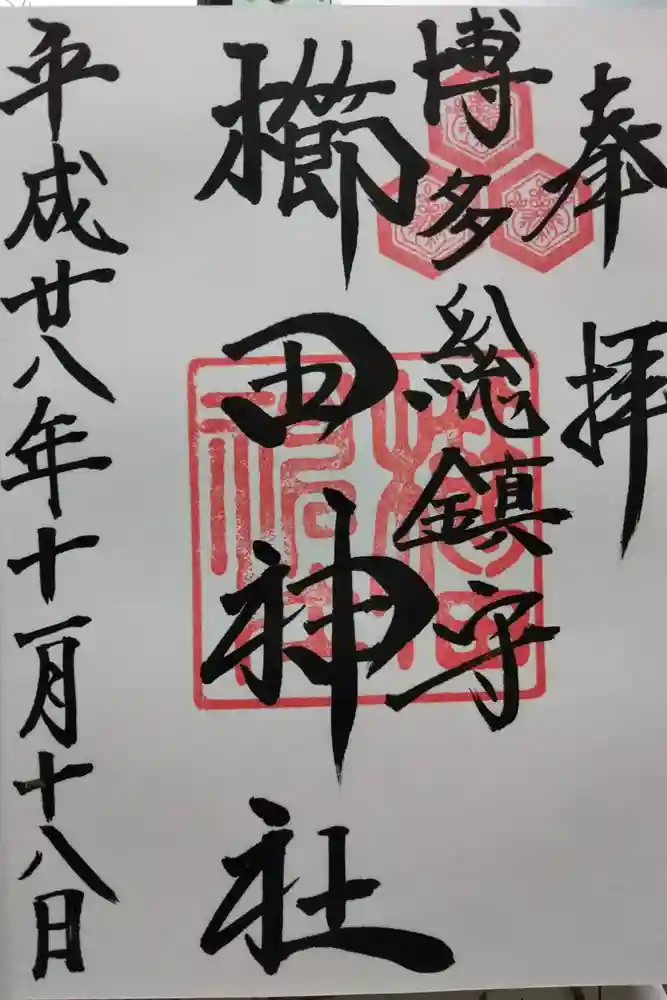 奉拝
博多総鎮守
櫛田神社
平成廿八年十一月十八日